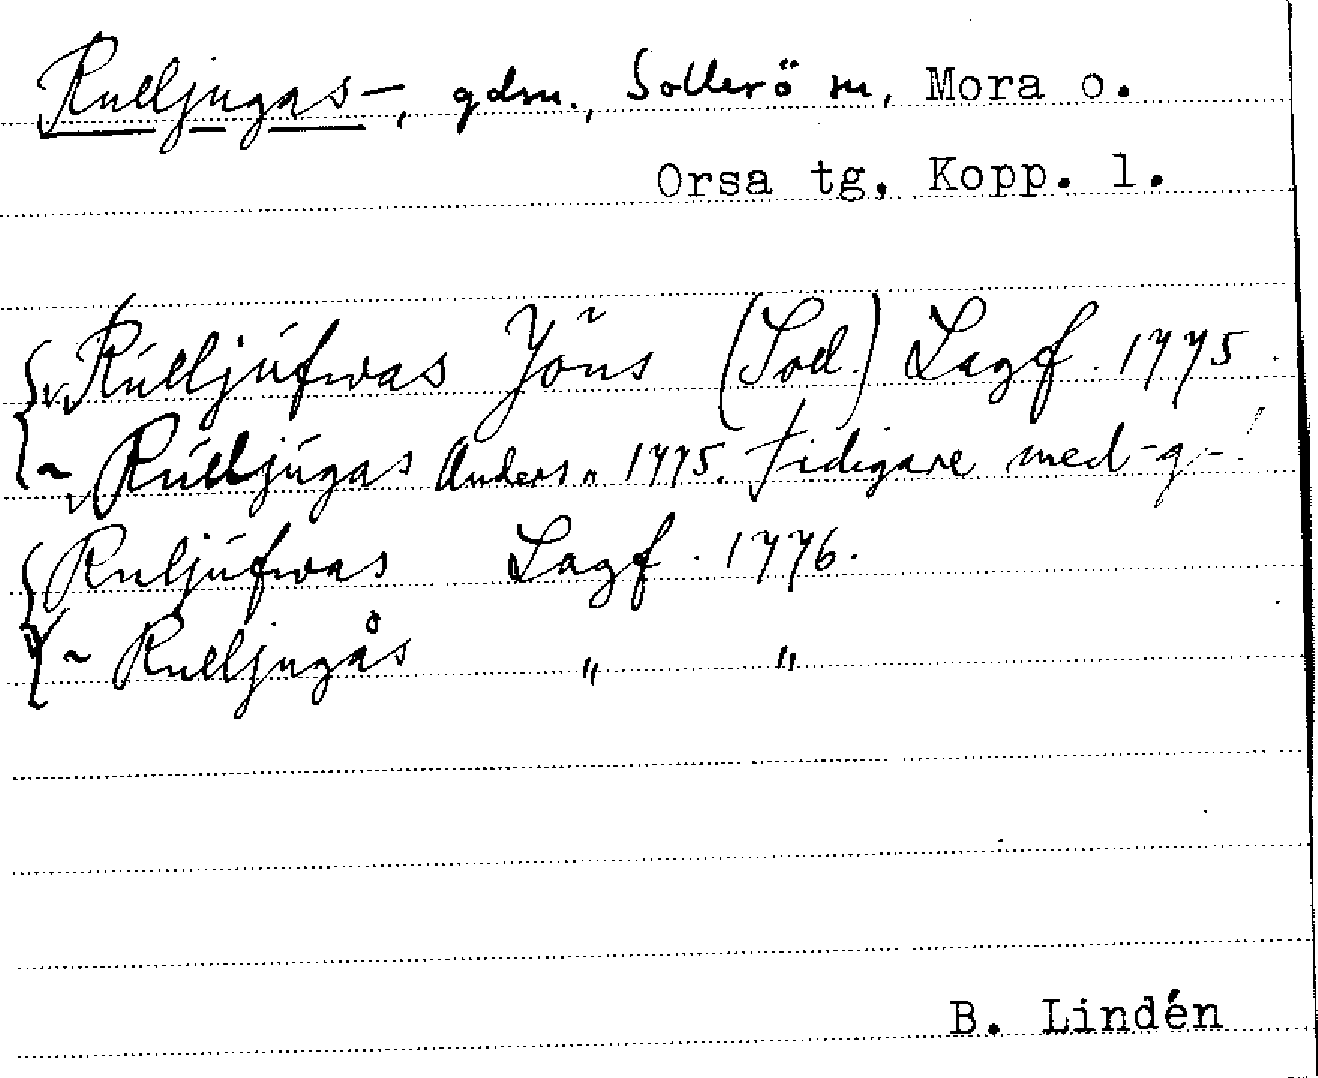 Rulljugas-, gdsn., Sollerö sn, Mora o.
Orsa tg, Kopp. l.
Rúlljúfwas Jöns (Sold.) Lagf. 1775.
~ Rúlljúgas Anders 1775. tidigare med -g-!
Ruljúfwas Lagf. 1776.
~ Rulljugås " "
B. Lindén